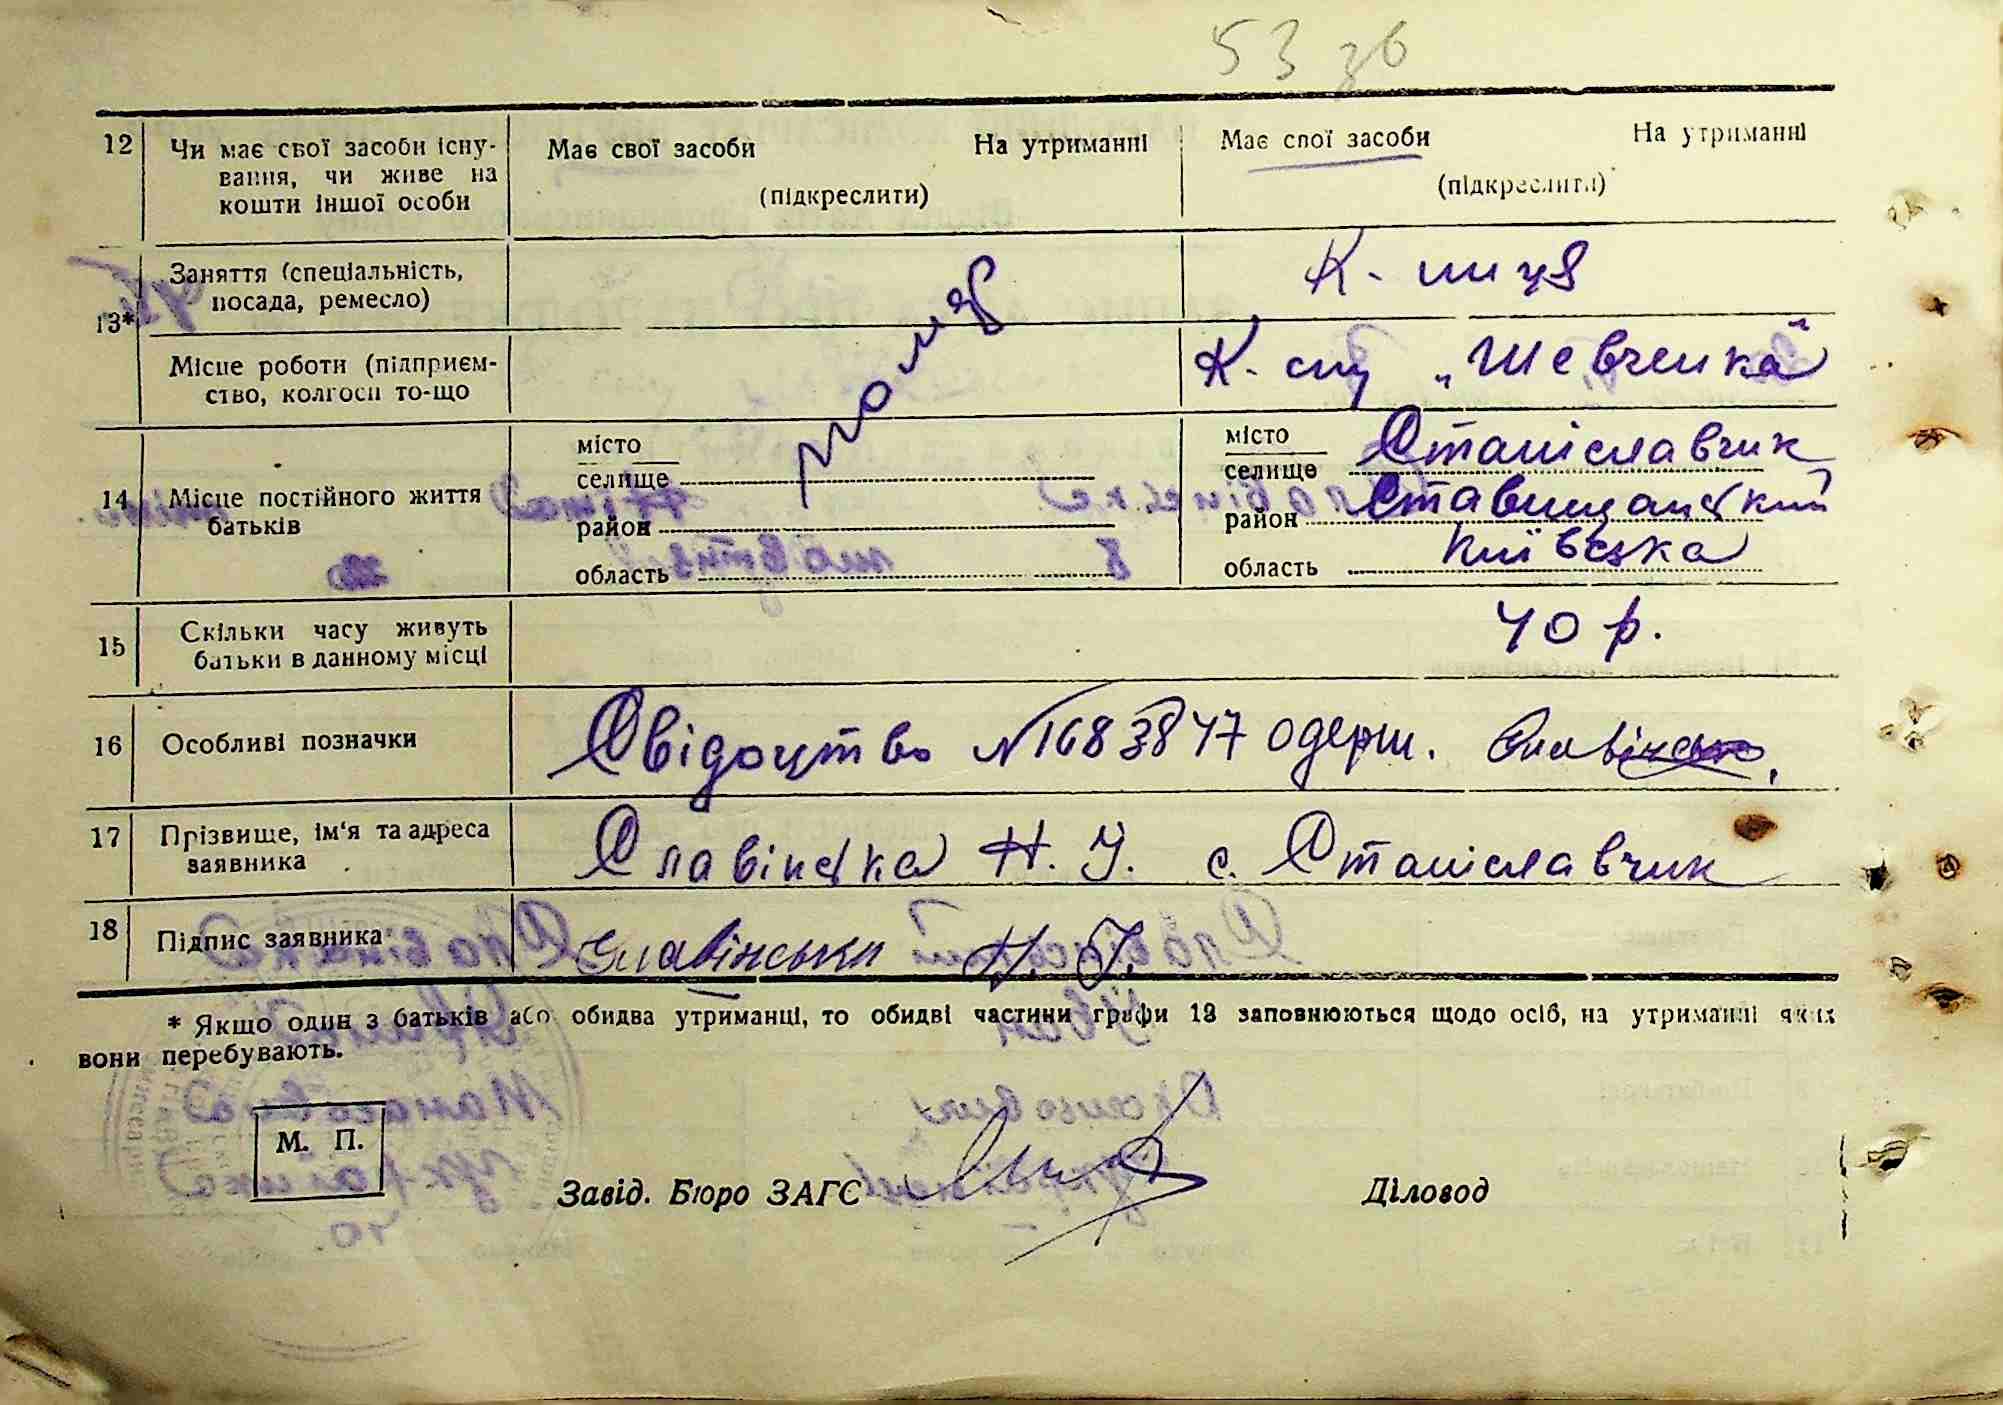 53 зв
12 Чи має свої засоби існу- Має свої засоби На утриманні Має свої засоби На утриманні
вання, чи живе на (підкреслити) (підкреслити)
кошти іншої особи
13* Заняття (спеціальність, К-ниця
посада, ремесло)
Місце роботи (підприєм- К-сп „Шевченка"
ство, колгосп то-що
помер
14 Місце постійного життя місто місто Станіславчик
батьків селище селище
район район Ставищанський
область область Київська
15 Скільки часу живуть 40 р.
батьки в данному місці
16 Особливі позначки Свідоцтво №1683847 одерж.
17 Прізвище, ім'я та адреса Славінська Н. У. с. Станіславчик
заявника
18 Підпис заявника Славінська
* Якщо один з батьків або обидва утриманці, то обидві частини графи 13 заповнюються щодо осіб, на утриманні яких
вони перебувають.
М. П.
Завід. Бюро ЗАГС Діловод